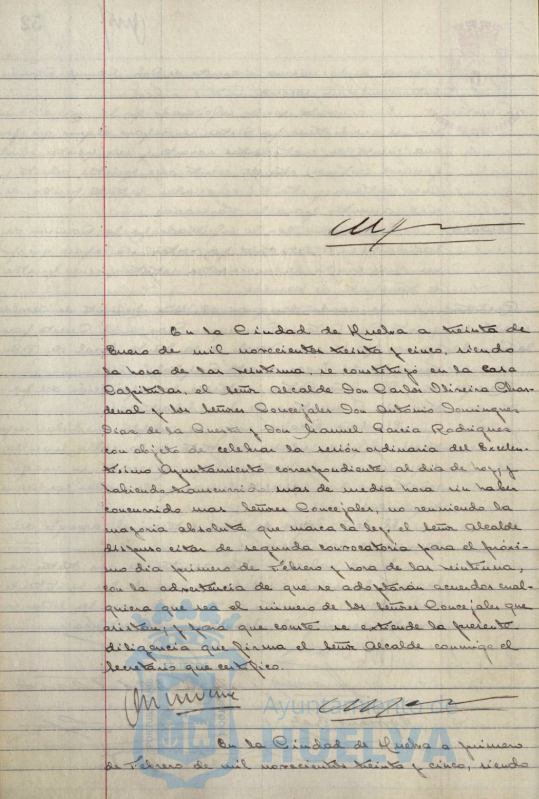 En la Ciudad de Huelva a treinta de
Enero de mil novecientos treinta y cinco, siendo
la hora de las veintiuna, se constituyó en la Casa
Capitular, el señor Alcalde Don Carlos Oliveira Char-
denal y los señores Concejales Don Antonio Dominguez
Diaz de la Cuesta y Don Manuel Garcia Rodriguez
con objeto de celebrar la sesión ordinaria del Excelen-
tisimo Ayuntamiento correspondiente al dia de hoy, y
habiendo transcurrido mas de media hora sin haber
concurrido mas señores Concejales, no reuniendo la
mayoria absoluta que marca la ley, el señor Alcalde
dispuso citar de segunda convocatoria para el próxi-
mo dia primero de Febrero y hora de las veintiuna,
con la advertencia de que se adoptarán acuerdos cual-
quiera que sea el número de los señores Concejales que
asistan, y para que conste se extiende la presente
diligencia que firma el señor Alcalde conmigo el
Secretario que certifico.
Ayuntamiento de
HUELVA
En la Ciudad de Huelva a primero
de Febrero de mil novecientos treinta y cinco, siendo